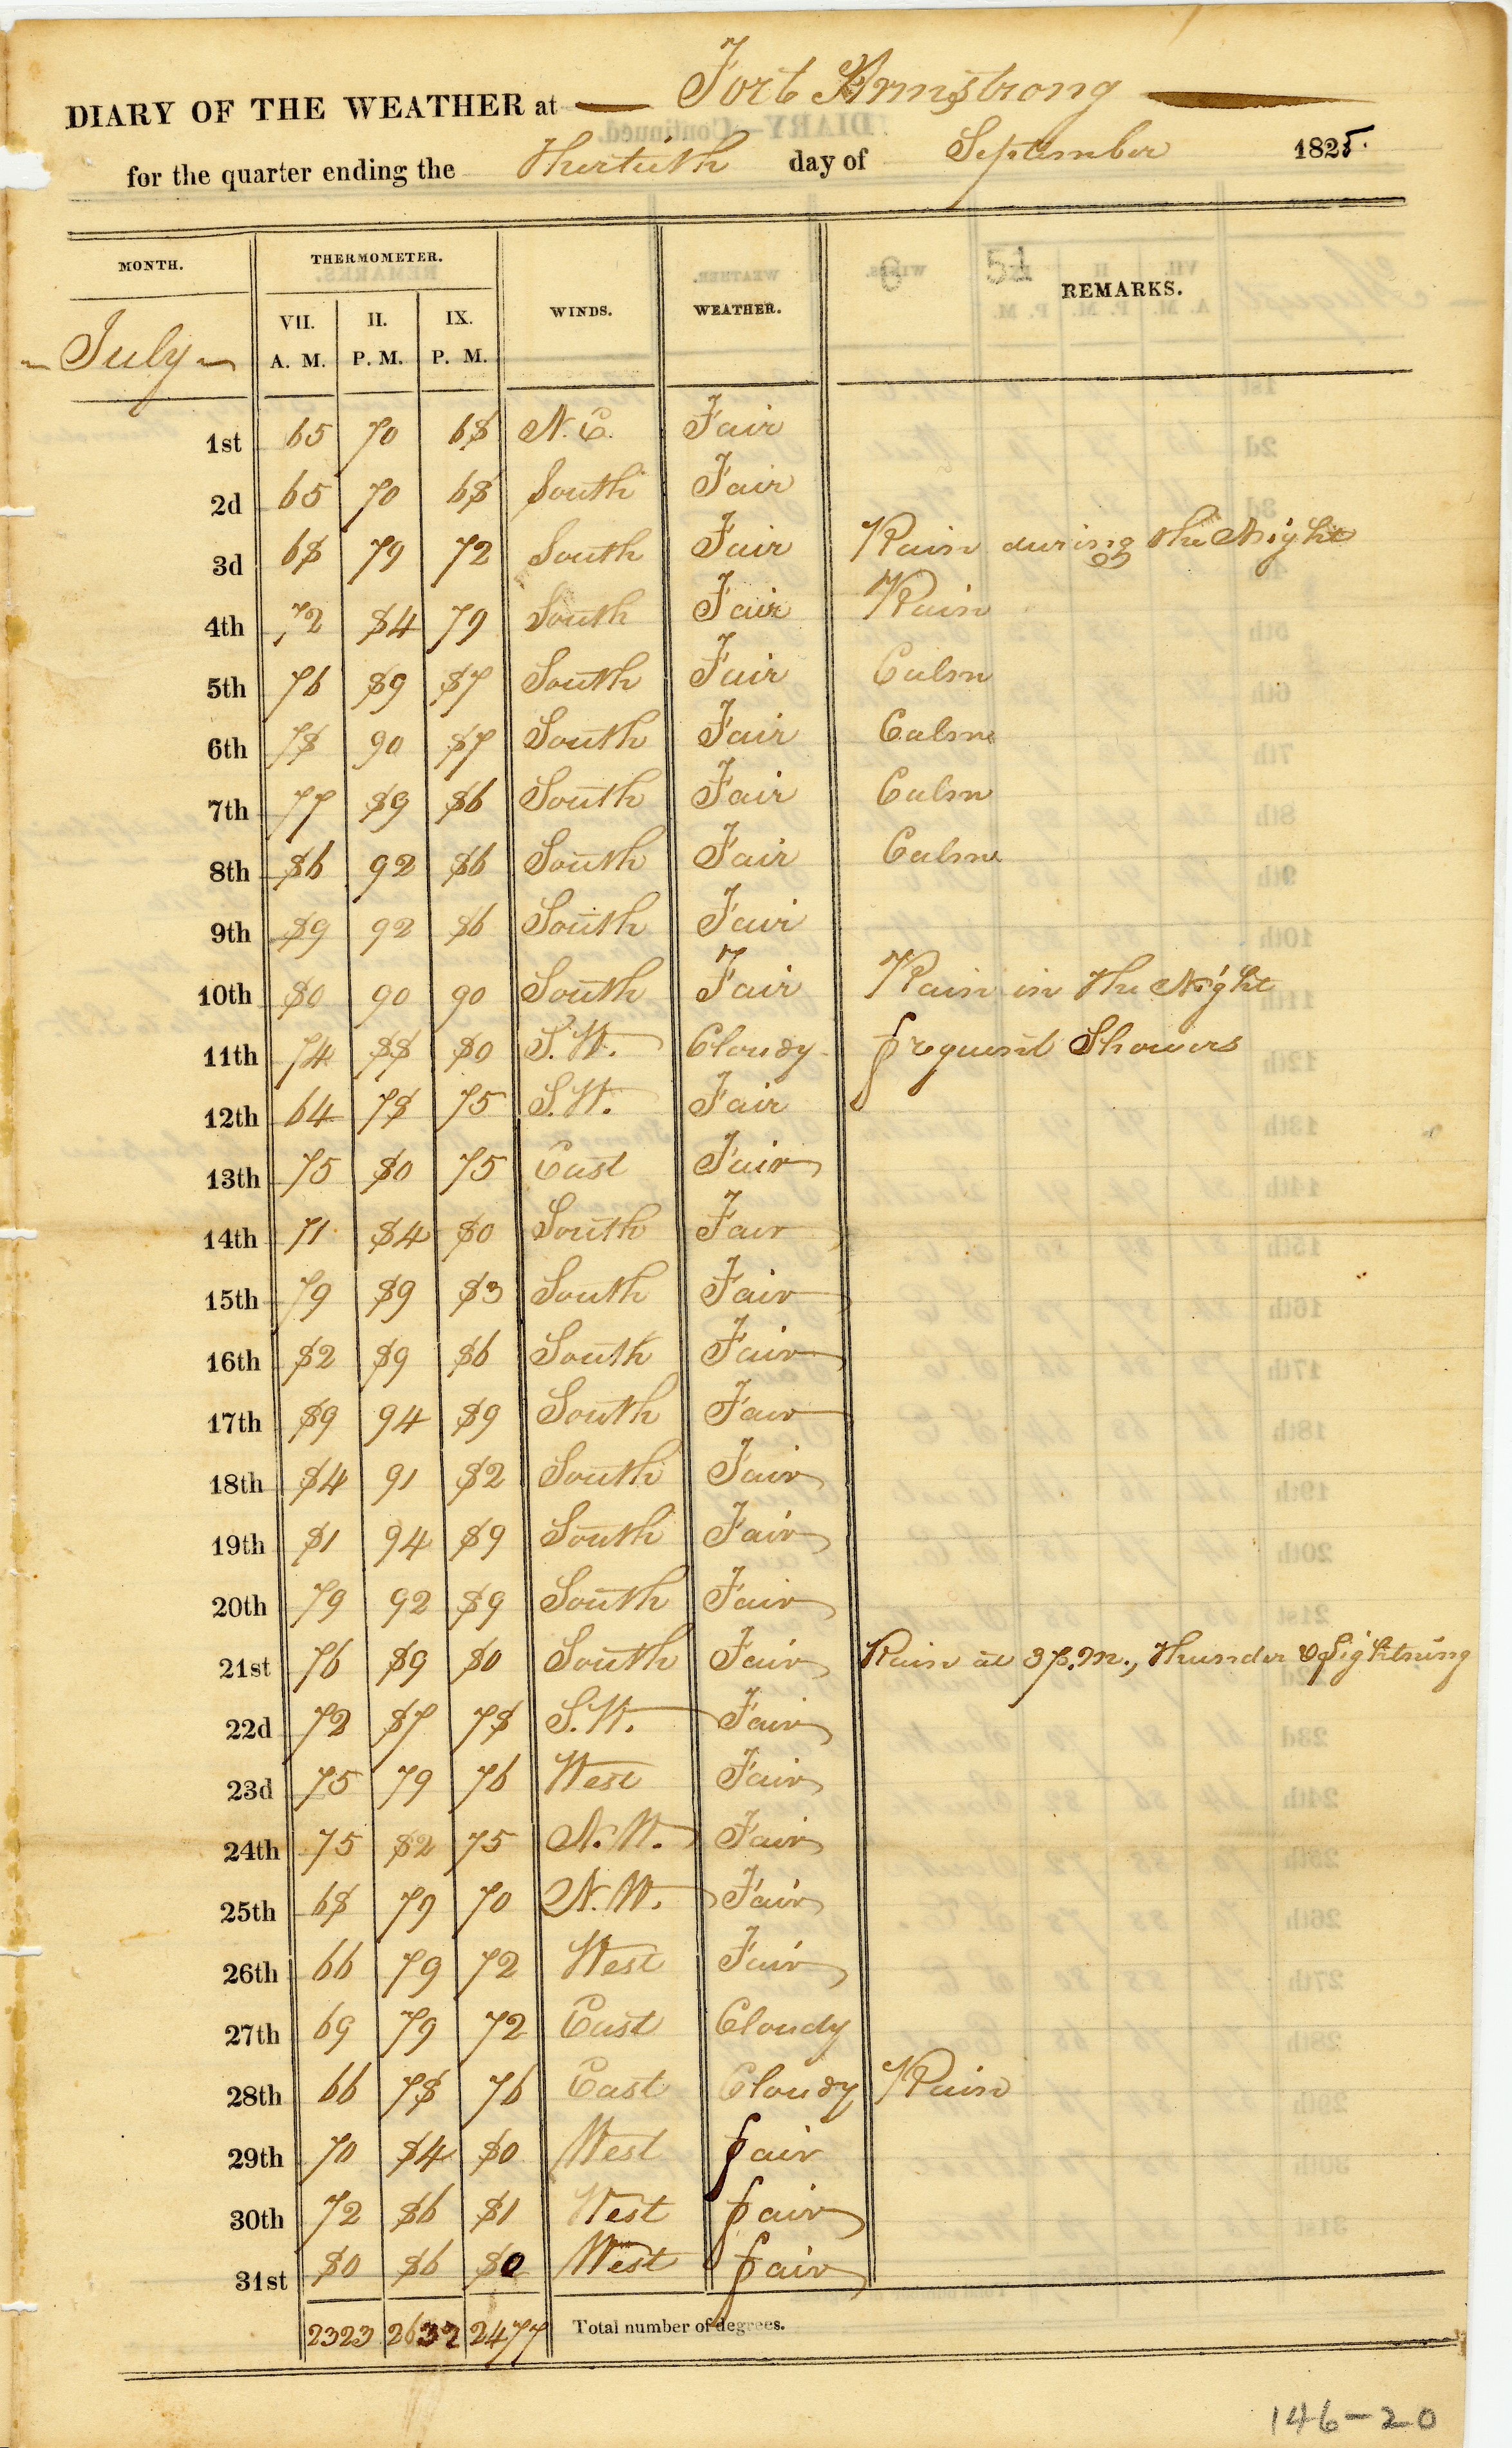 DIARY OF THE WEATHER at Fort Armstrong
for the quarter ending the Thirtieth day of September 1825.
MONTH. THERMOMETER. WINDS. WEATHER. REMARKS.
July VII. A. M. II. P. M. IX. P. M.
51
1st 65 70 68 N. E. Fair
2d 65 70 68 South Fair
3d 68 79 72 South Fair Rain during the Night
4th 72 84 79 South Fair Rain
5th 76 89 87 South Fair Calm
6th 78 90 87 South Fair Calm
7th 77 89 86 South Fair Calm
8th 86 92 86 South Fair Calm
9th 89 92 86 South Fair
10th 80 90 90 South Fair Rain in the Night
11th 74 88 80 S. W. Cloudy frequent Showers
12th 64 78 75 S. W. Fair
13th 75 80 75 East Fair
14th 71 84 80 South Fair
15th 79 89 83 South Fair
16th 82 89 86 South Fair
17th 89 94 89 South Fair
18th 84 91 82 South Fair
19th 81 94 89 South Fair
20th 79 92 89 South Fair
21st 76 89 80 South Fair Rain at 3 p.m., Thunder & Lightning
22d 72 87 78 S. W. Fair
23d 75 79 76 West Fair
24th 75 82 75 N. W. Fair
25th 68 79 70 N. W. Fair
26th 66 79 72 West Fair
27th 69 79 72 East Cloudy
28th 66 78 76 East Cloudy Rain
29th 70 84 80 West fair
30th 72 86 81 West fair
31st 80 86 80 West fair
2323 2632 2477 Total number of degrees.
146-20